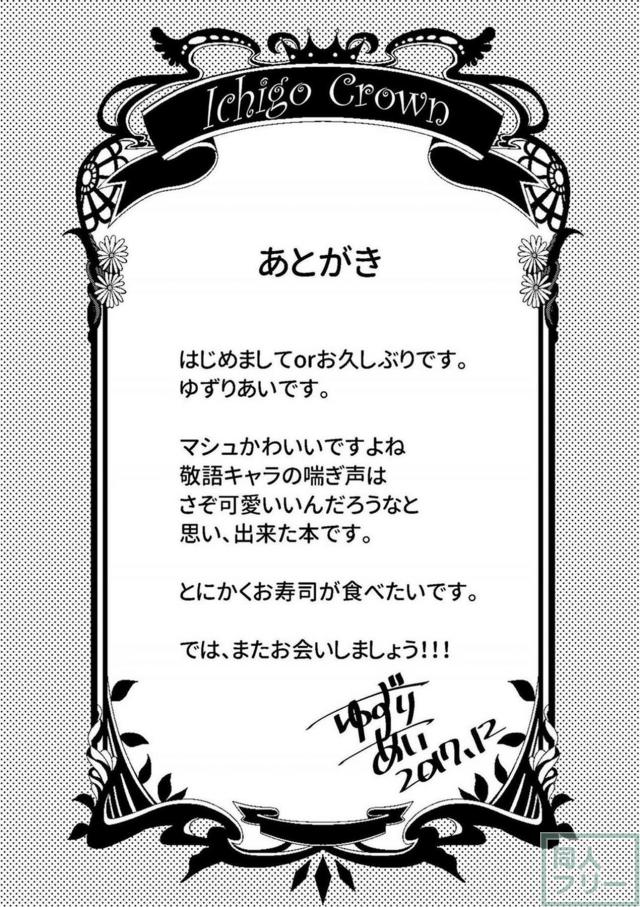 Ichigo Crown
あとがき
はじめましてorお久しぶりです。
ゆずりあいです。
マシュかわいいですよね
敬語キャラの喘ぎ声は
さぞ可愛いいんだろうなと
思い、出来た本です。
とにかくお寿司が食べたいです。
では、またお会いしましょう!!!
ゆずり
あい
2017.12
同人
フリー